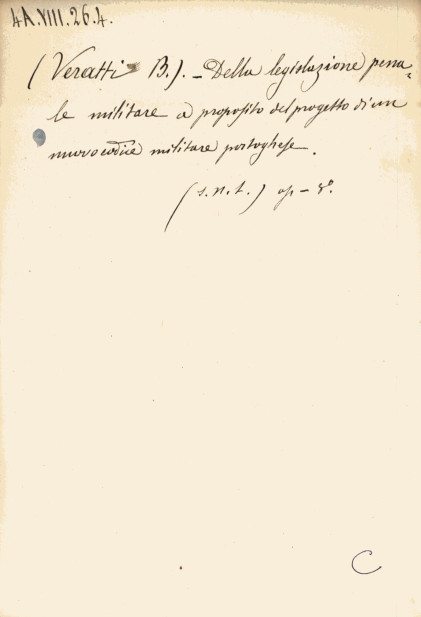 4A.VIII.26.4.
(Veratti B.). - Della legislazione pena-
le militare a proposito del progetto di un
nuovo codice militare portoghese.
(s.n.t.) op - 8º.
C